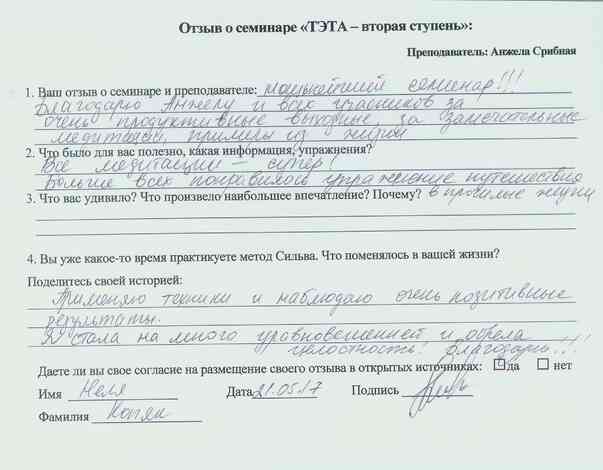 Отзыв о семинаре «ТЭТА – вторая ступень»:
Преподаватель: Анжела Срибная
1. Ваш отзыв о семинаре и преподавателе: мощнейший семенар!!!
Благодарю Анжелу и всех участников за
очень продуктивные выходные, за замечательные
медитации, примеры из жизни
2. Что было для вас полезно, какая информация, упражнения?
Все медитации – супер!
Больше всех понравилось упражнение путешествия
3. Что вас удивило? Что произвело наибольшее впечатление? Почему? в прошлые жизни
4. Вы уже какое-то время практикуете метод Сильва. Что поменялось в вашей жизни?
Поделитесь своей историей:
Применяю техники и наблюдаю очень позитивные
результаты.
Я стала на много уравновешенней и обрела
целостность! Благодарю!!!
Даете ли вы свое согласие на размещение своего отзыва в открытых источниках: да нет
Имя Неля Дата 21.05.17 Подпись
Фамилия